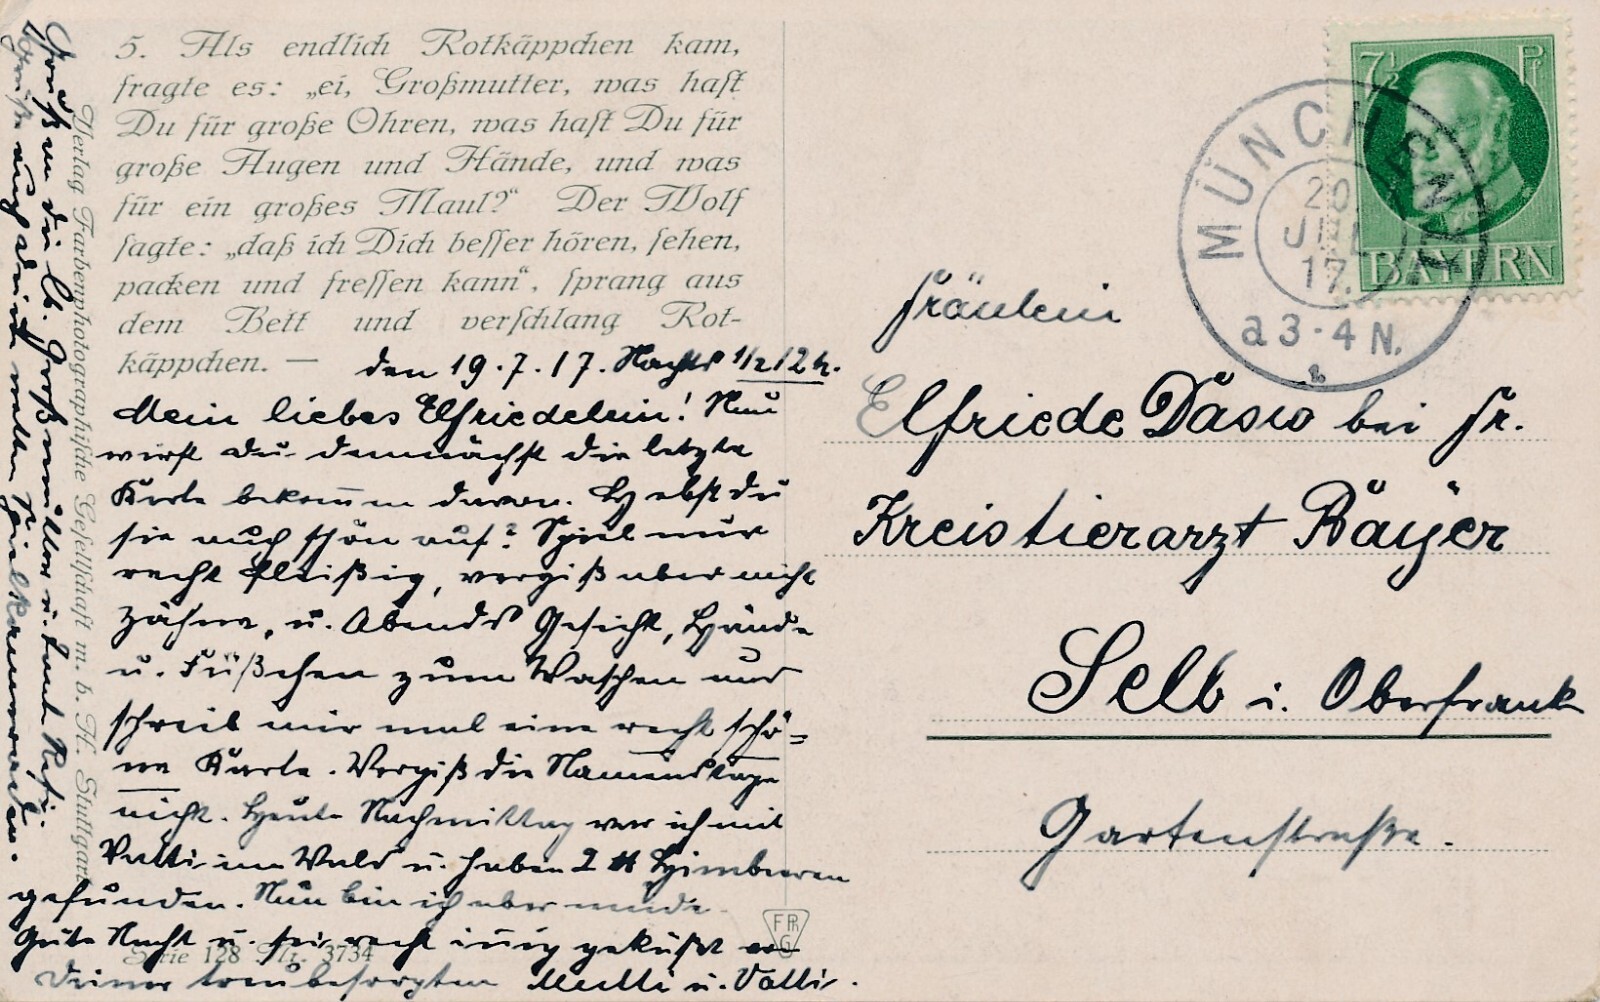 5. Als endlich Rotkäppchen kam,
fragte es: „ei, Großmutter, was hast
Du für große Ohren, was hast Du für
große Augen und Hände, und was
für ein großes Maul?“ Der Wolf
sagte: „daß ich Dich besser hören, sehen,
packen und fressen kann“, sprang aus
dem Bett und verschlang Rot-
käppchen. —
den 19.7.17. Nachts 1/2 12 h.
Mein liebes Elfriedelein! Nun
wirst du demnächst die letzte
Karte bekommen davon. Hebst du
sie auch schön auf? Spiel nur
recht fleißig, vergiß aber nicht
Zähne, u. Abends Gesicht, Hände
u. Füßchen zum Waschen und
schreib mir mal eine recht schö=
ne Karte. Vergiß die Namenstage
nicht. Heute Nachmittag war ich mit
Vatti im Wald u. haben 2 ℔ Himbeeren
gefunden. Nun bin ich aber müde.
Gute Nacht u. sei recht innig geküßt von
Deiner treubesorgten Mutti u. Vatti.
Grüße an die lb. Großmutter u. Tante Resi.
Grüße auch deine netten Spielkameraden.
Verlag Farbenphotographische Gesellschaft m. b. H. Stuttgart
Serie 128 Nr. 3734
FPhG
7½ Pf
BAYERN
MÜNCHEN
20
JUL
17.
a 3-4 N.
Fräulein
Elfriede Dasio bei Fr.
Kreistierarzt Bayer
Selb i. Oberfrank
Gartenstraße.